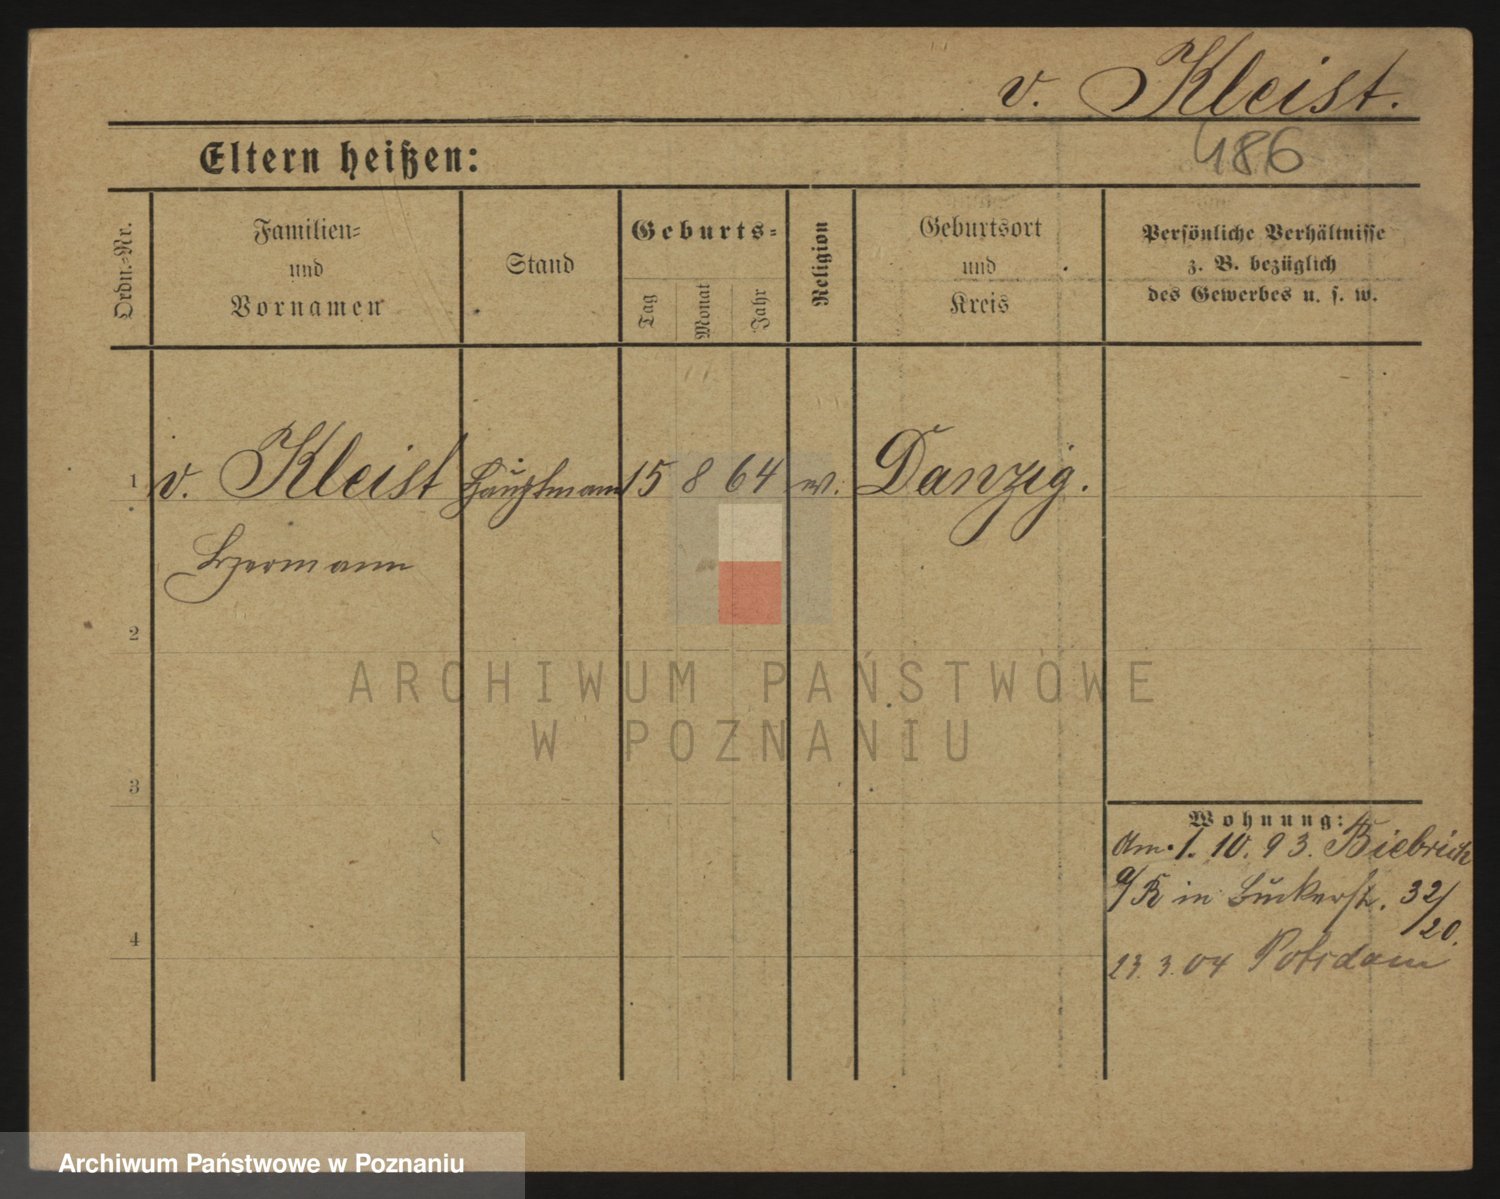 v. Kleist.
486
Eltern heißen:
Ordn.-Nr.
Familien-
und
Vornamen
Stand
Geburts-
Tag
Monat
Jahr
Religion
Geburtsort
und
Kreis
Persönliche Verhältnisse
z. B. bezüglich
des Gewerbes u. s. w.
1 v. Kleist Hauptmann 15 8 64 ev. Danzig.
Hermann
2
ARCHIWUM PAŃSTWOWE
W POZNANIU
3
Wohnung:
Am 1. 10. 93. Biebrich
a/R in 32/
20.
4
23. 3. 04 Potsdam
Archiwum Państwowe w Poznaniu